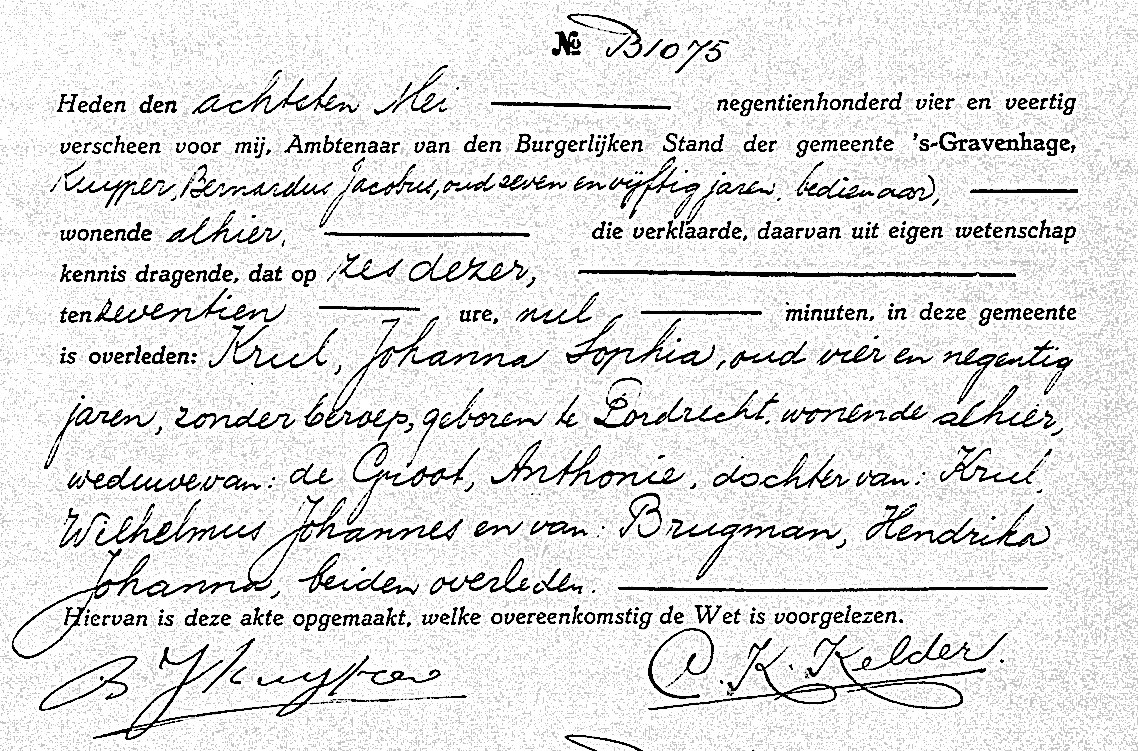 № B1075
Heden den achtsten Mei negentienhonderd vier en veertig
verscheen voor mij, Ambtenaar van den Burgerlijken Stand der gemeente 's-Gravenhage,
Kuyper, Bernardus Jacobus, oud zeven en vijftig jaren, bedienaar,
wonende alhier, die verklaarde, daarvan uit eigen wetenschap
kennis dragende, dat op zes dezer,
ten zeventien ure, nul minuten, in deze gemeente
is overleden: Krul, Johanna Sophia, oud vier en negentig
jaren, zonder beroep, geboren te Dordrecht, wonende alhier,
weduwe van: de Groot, Anthonie, dochter van: Krul,
Wilhelmus Johannes en van: Brugman, Hendrika
Johanna, beiden overleden.
Hiervan is deze akte opgemaakt, welke overeenkomstig de Wet is voorgelezen.
B J Kuyper C. K. Kelder.